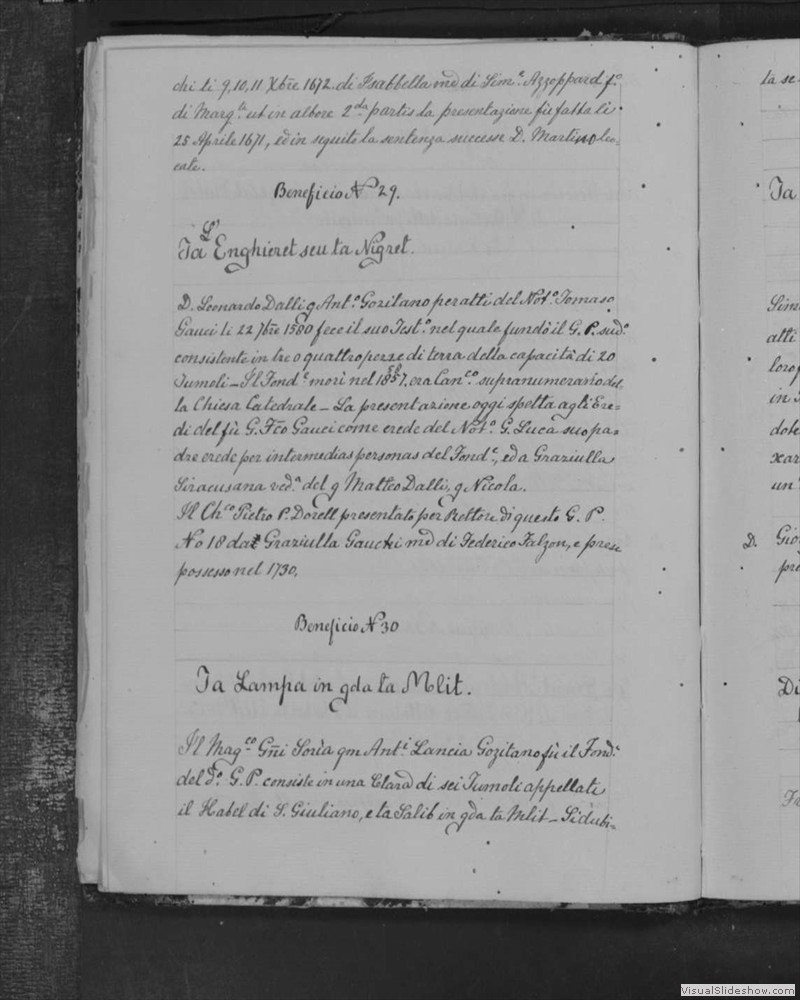 chi li 9, 10, 11 Xbre 1672. di Isabbella md di Sim.e Azzoppard f.o
di Marg.ta ut in albore 2.da partis la presentazione fù fatta li
25 Aprile 1671, ed in seguito la sentenza successe D. Martino Leo-
cate.
Beneficio No 29.
Ta L' Enghieret seu ta Nigret.
D. Leonardo Dalli q Ant.o Gozitano per atti del Not.o Tomaso
Gauci li 22 7bre 1580 fece il suo Test.o nel quale fundò il G. P. sud.o
consistente in tre o quattro pezze di terra della capacità di 20
Tumoli – Il Fond.e morì nel era Can.co supranumerario del-
la Chiesa Catedrale – La presentazione oggi spetta agli Ere-
di del fù G. Fco Gauci come erede del Not.o G. Luca suo pa-
dre erede per intermedias personas del Fond.e, ed a Graziulla
Siracusana ved.a del q Matteo Dalli, q Nicola.
Il Ch.co Pietro P. Dorell presentato per Rettore di questo G. P.
No 18 da Graziulla Gauchi md di Federico Falzon, e prese
possesso nel 1730.
Beneficio No 30
Ta Lampa in gda ta Mlit.
Il Mag.co Gñi Soria qm Ant.i Lancia Gozitano fù il Fond.e
del d.o G. P. consiste in una Clard di sei Tumoli appellati
il Habel di S. Giuliano, e ta Salib in gda ta Mlit – Si dubi-
ta se
Ta
Sim
atti
loro
in
dote
xar
un
D. Gio
pre
Di
VisualSlideshow.com